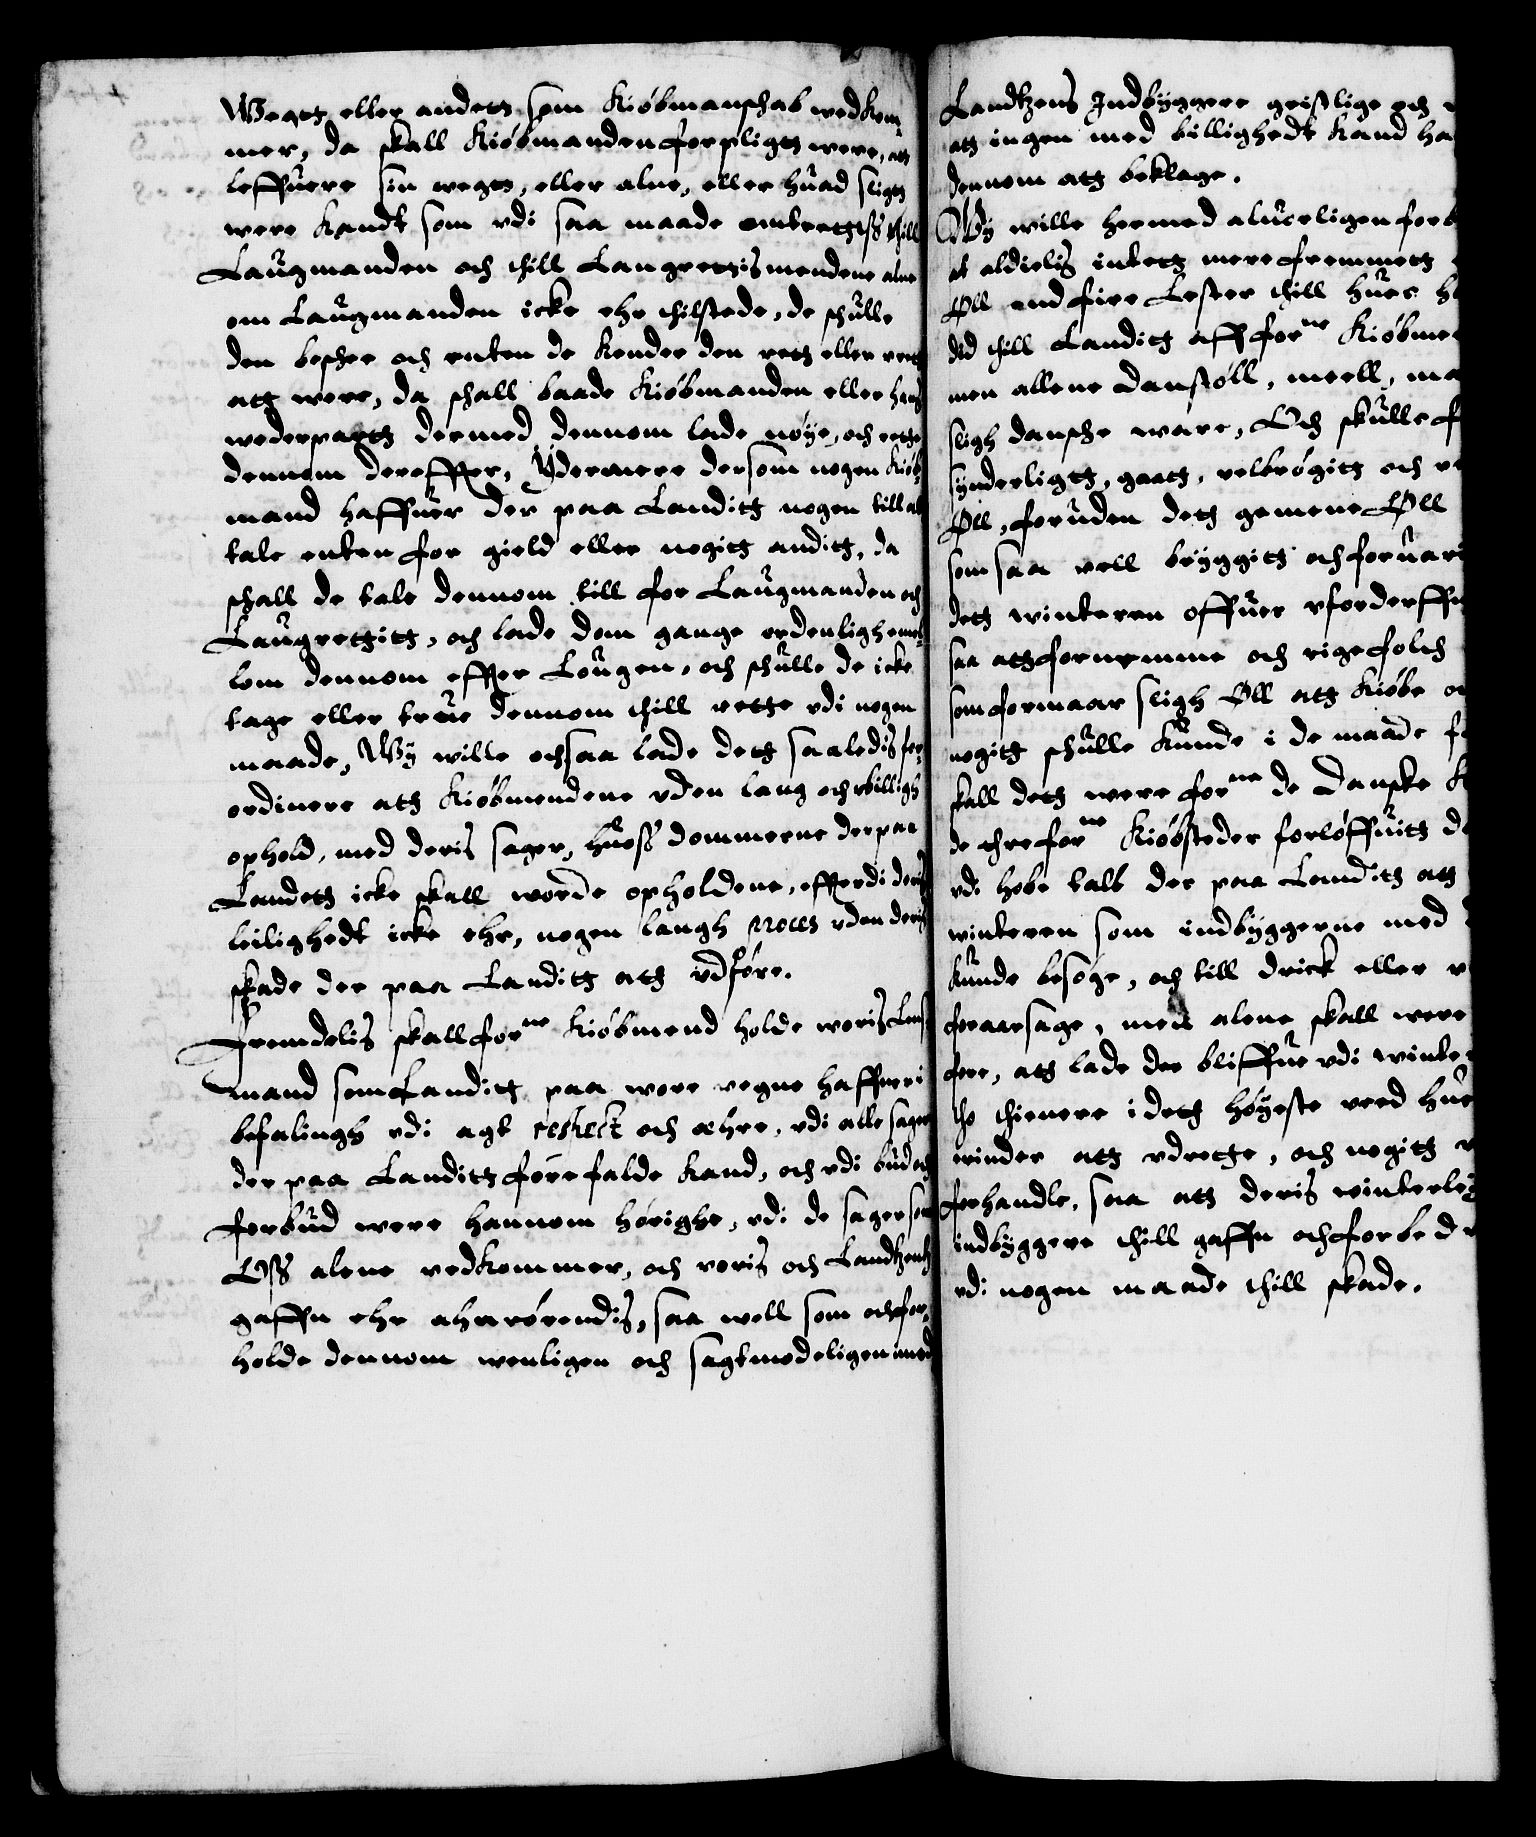 Wegtt eller andett som Kiøbmanschab wedkom¬
mer, da skall Kiøbmanden forpligtt were, att
leffuere sin wegtt, eller alne, eller huad sligtt
were kandt som vdi saa maade omtrettiss thill
Laugmanden och thill Laugrettismendene alne
om Laugmanden icke ehr thilstede, de schulle
den besehee och enten de kender den rett eller vrett
att were, da schall baade Kiøbmanden eller hans
wederpartt dermed dennom lade nøye, och rette
dennom dereffter, Ydermere dersom nogen Kiøb¬
mand haffuer der paa Landitt nogen till at
tale enten for gield eller nogitt anditt, da
schall de tale dennom till for Laugmanden och
Laugrettitt, och lade dom gange ordenlighemel¬
lom dennom effter Lougen, och schulle de icke
tage eller true dennom thill rette vdi nogen
maade, Wy wille ochsaa lade dett saaledis for¬
ordinere att Kiøbmendene vden lang och vbilligh
ophold, med deris sager, huoss dommerne der paa
Landett icke skall worde opholdene, effterdi deris
leilighedt icke ehr, nogen langh proces vden deris
skade der paa Landitt att vdføre.
Fremdelis skall forne Kiøbmend holde woris Lens¬
mand som Landitt paa wore vegne haffuer i
befalingh vdi agt respect och æhre, vdi alle sager
der paa Landitt forefalde kand, och vdi bud och
forbud were hannom hørighe, vdi de sager som
Oss alene vedkommer, och voris och Landtzens
gaffn ehr anrørendis, saa well som och for¬
holde dennom wenligen och sagtmodeligen imod
Landtzens Indbyggere geistlige och
att ingen med billighedt kand ha
dennom att beklage.
Wy wille hermed aluerligen forb
at aldielis intett mere fremmett
Øll end fire Lester thill huer h
did thill Landitt aff forne Kiøbme
men allene Danskøll, meell, ma
sligh danske ware, Och skulle f
synderligtt, gaatt, velbrøgitt och
Øll, foruden dett gemene Øll
som saa vell bryggitt och foruari
dett winteren offuer vforderffu
saa att fornemme och rige folch
som formaar sligh Øll att kiøbe
nogitt schulle kunde i de maade f
skall dett were forne de Danske K
de threforne Kiøbsteder forløffuitt
vdi hobe tall der paa Landitt att
winteren som indbyggerne med
kunde besøge, och till drick eller
foraarsage, men alene skall were
fore, att lade der bliffue vdi winter
tho thienere i dett høyeste veed hue
vinder att vdrette, och nogitt
forhandle, saa att deris winterley
indbyggere thill gaffn och forbedr
vdi nogen maade thill skade.